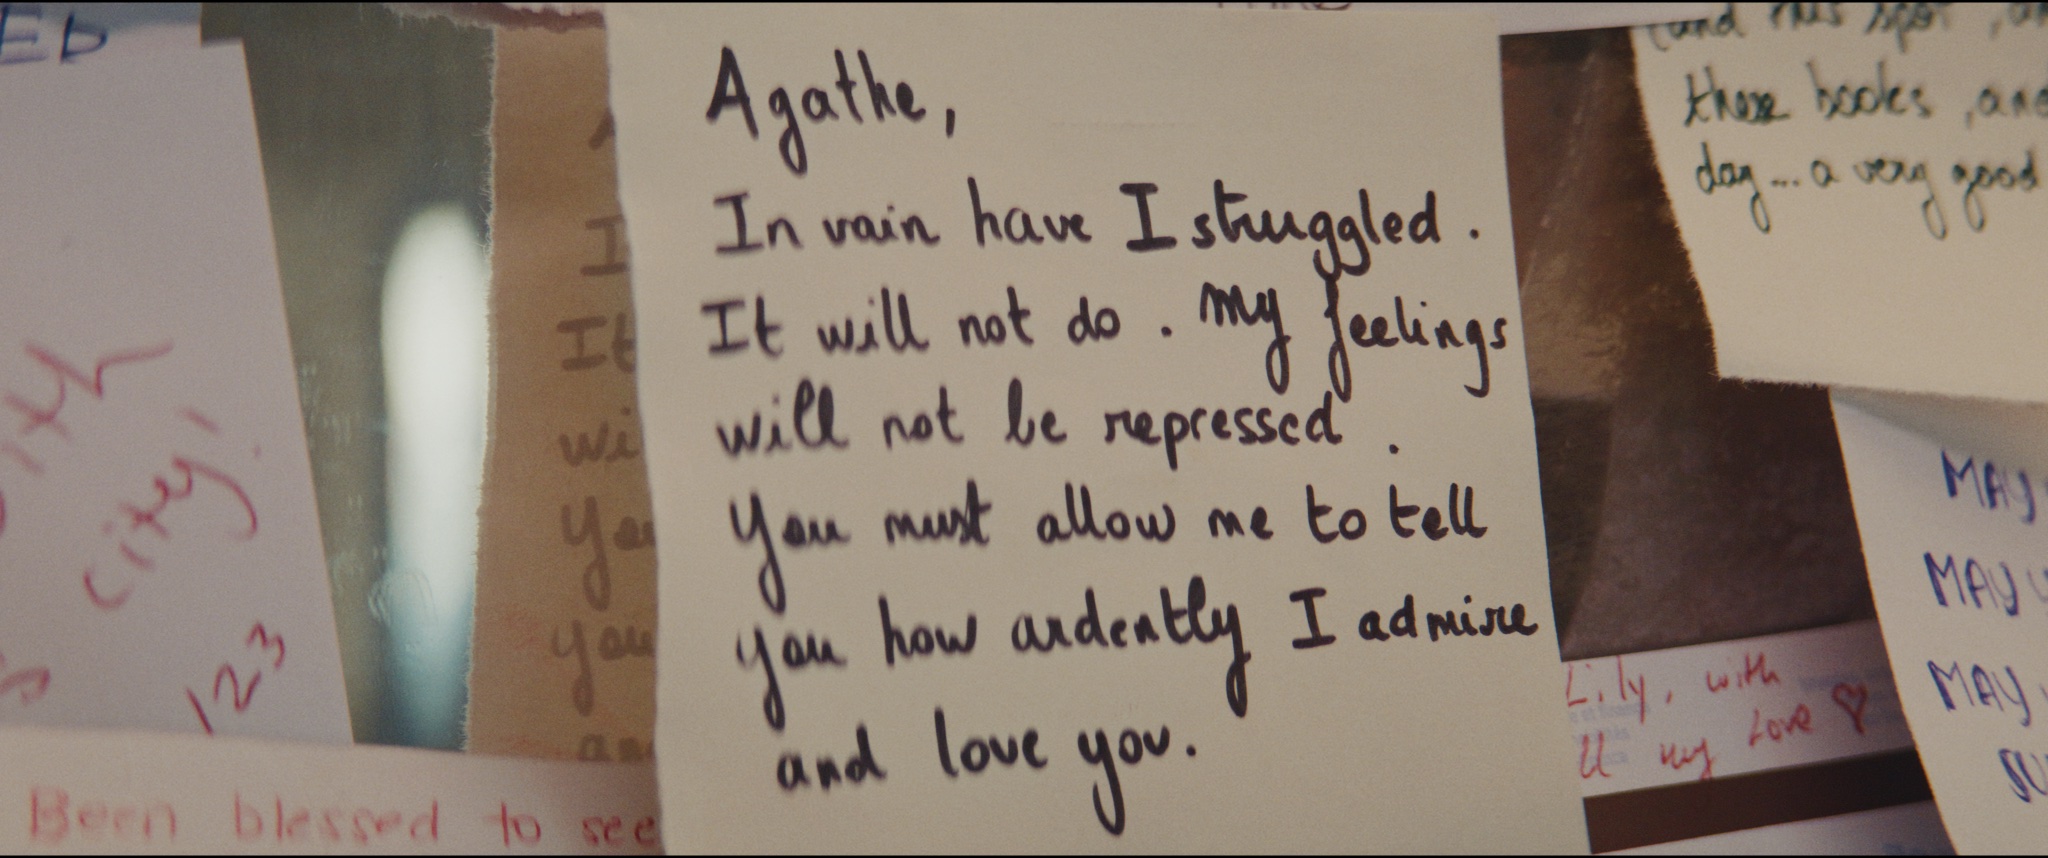 Agathe,
In vain have I struggled.
It will not do. My feelings
will not be repressed.
You must allow me to tell
you how ardently I admire
and love you.
ED
city!
123
Been blessed to see
(and this spot, an
these books, and
day... a very good
Lily, with
ll my Love ♡
MAY
MAY
MAY